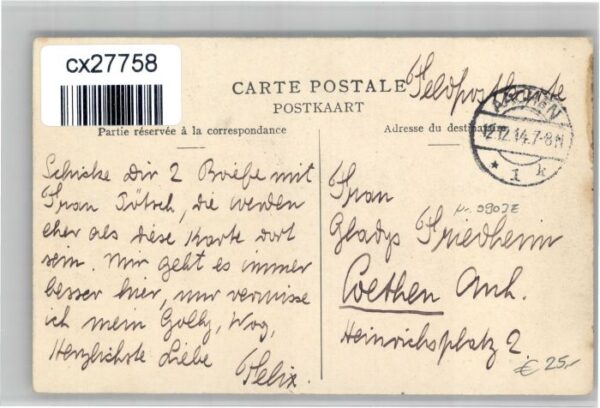 cx27758
CARTE POSTALE
POSTKAART
Feldpostkarte
AACHEN
12.12.14.7-8N
* 1 k
Partie réservée à la correspondance
Adresse du destinataire
Schicke Dir 2 Briefe mit
Frau Tötsch, die werden
eher als diese Karte dort
sein. Mir geht es immer
besser hier, nur vermisse
ich mein Golly, Wog,
Herzlichste Liebe
Felix.
Frau
Gladys Friedheim
Coethen Anh.
Heinrichsplatz 2.
€ 25,-